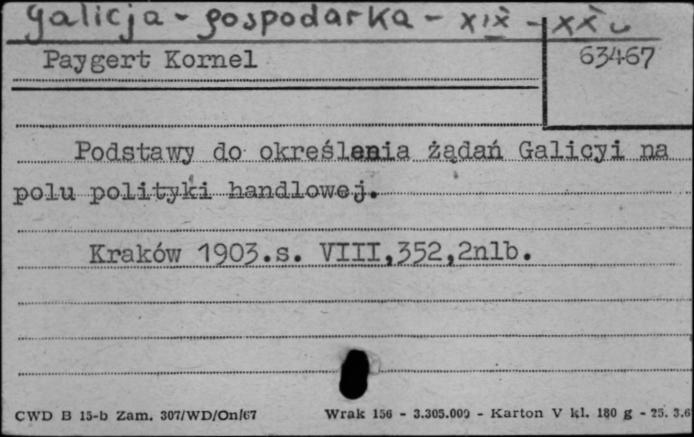 Galicja - gospodarka - XIX - XX w
Paygert Kornel
63467
Podstawy do określenia żądań Galicyi na
polu polityki handlowej.
Kraków 1903.s. VIII,352,2nlb.
CWD B 15-b Zam. 307/WD/On/67 Wrak 156 - 3.305.000 - Karton V kl. 180 g - 25. 3.6